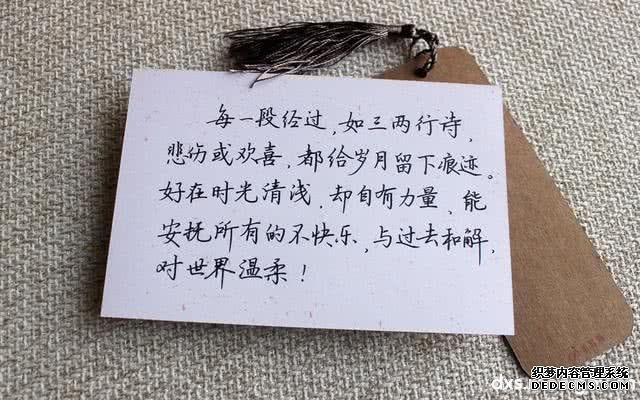 每一段经过，如三两行诗，
悲伤或欢喜，都给岁月留下痕迹。
好在时光清浅，却自有力量，能
安抚所有的不快乐，与过去和解，
对世界温柔！
织梦内容管理系统
DEDECMS.COM